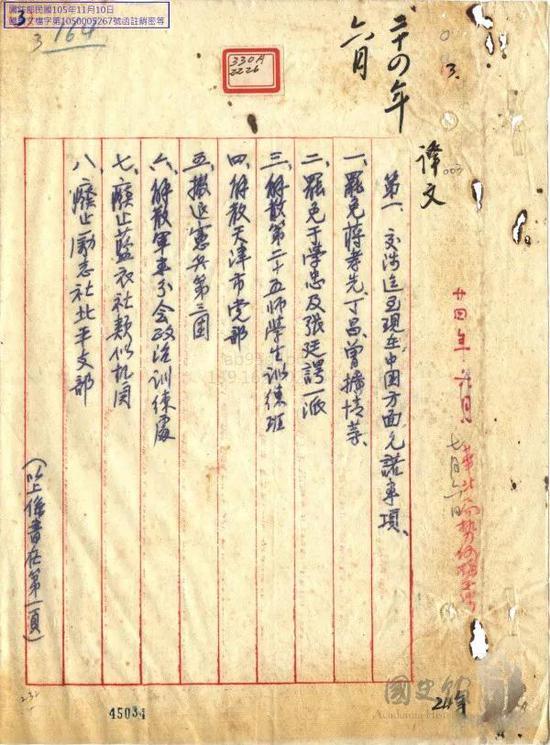 國防部民國105年11月10日
國	文檔字第1050005267號函註銷密等
3
164
330A
2226
二十四年
六月
譯文
003
廿四年六月
七月六日
第一、交涉迄至現在中國方面允諾事項、
一、罷免蔣孝先、丁昌、曾擴情等、
二、罷免于學忠及張廷諤一派
三、解散第二十五師學生訓練班
四、解散天津市党部
五、撤退憲兵第三團
六、解散軍事分会政治訓練處
七、癈止藍衣社類似机関
八、癈止励志社北平支部
(以上係書在第一頁)
國史館
Academia Historica
24年
45034